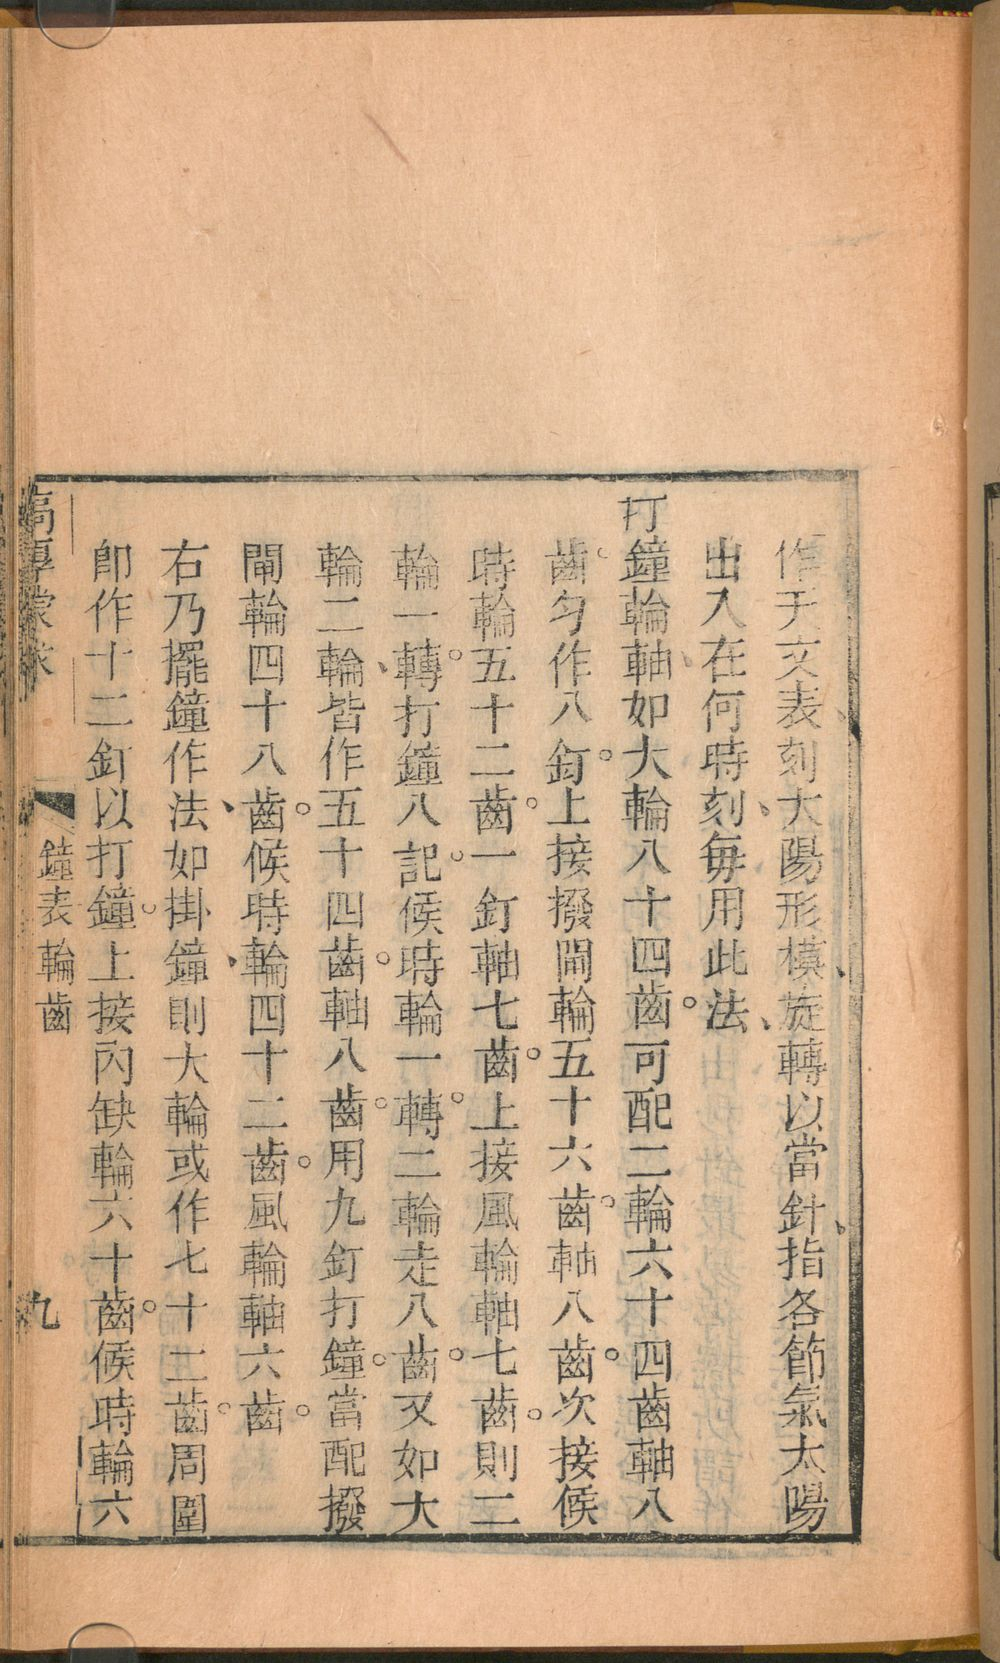 作天文表刻太陽形模旋轉以當針指各節氣太陽
出入在何時刻每用此法
打鐘輪軸如大輪八十四齒可配二輪六十四齒軸八
齒勻作八釘上接撥閘輪五十六齒軸八齒次接候
時輪五十二齒一釘軸七齒上接風輪軸七齒則二
輪一轉打鐘八記候時輪一轉二輪走八齒又如大
輪二輪皆作五十四齒軸八齒用九釘打鐘當配撥
閘輪四十八齒候時輪四十二齒風輪軸六齒
右乃擺鐘作法如掛鐘則大輪或作七十二齒周圍
卽作十二釘以打鐘上接內缺輪六十齒候時輪六
高厚蒙求
鐘表輪齒
九